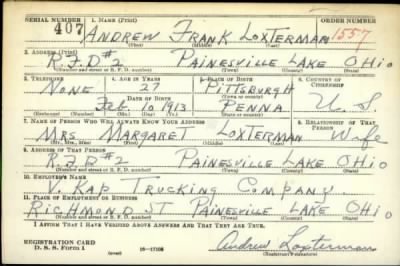 SERIAL NUMBER 1. NAME (Print) ORDER NUMBER
407 ANDREW FRANK LOXTERMAN 1557
(First) (Middle) (Last)
2. ADDRESS (Print)
R.F.D #2 PAINESVILLE LAKE OHIO
(Number and street or R. F. D. number) (Town) (County) (State)
3. TELEPHONE 4. AGE IN YEARS 5. PLACE OF BIRTH 6. COUNTRY OF CITIZENSHIP
NONE 27 PITTSBURGH
DATE OF BIRTH (Town or county)
FEB 10 1913 PENNA U. S.
(Mo.) (Day) (Yr.) (State or country)
7. NAME OF PERSON WHO WILL ALWAYS KNOW YOUR ADDRESS 8. RELATIONSHIP OF THAT PERSON
MRS MARGARET LOXTERMAN WIFE
(Mr., Mrs., Miss) (First) (Middle) (Last)
9. ADDRESS OF THAT PERSON
R.F.D #2 PAINESVILLE LAKE OHIO
(Number and street or R. F. D. number) (Town) (County) (State)
10. EMPLOYER'S NAME
V. KAP TRUCKING COMPANY
11. PLACE OF EMPLOYMENT OR BUSINESS
RICHMOND ST PAINESVILLE LAKE OHIO
(Number and street or R. F. D. number) (Town) (County) (State)
I AFFIRM THAT I HAVE VERIFIED ABOVE ANSWERS AND THAT THEY ARE TRUE.
REGISTRATION CARD
D. S. S. Form 1 (over) Andrew Loxterman
(Registrant's signature)